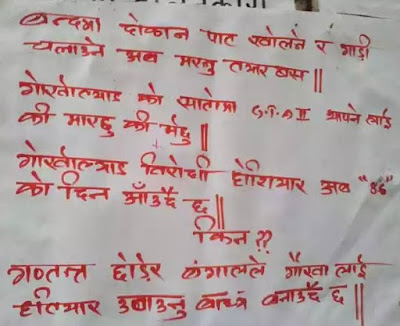 बन्दमा दोकान पाट खोलने र गाडी
चलाउने अब मरनु तयार बस ||
गोर्खाल्याण्ड को सातोमा G.T.A II थापने लाई
की मारछु की मर्छु ||
गोर्खाल्याण्ड विरोधी होशियार अब "86"
को दिन आँउदै छ ||
किन ??
गणतन्त्र छोडेर बंगालले गोर्खा लाई
हतियार उठाउनु बाध्य बनाउदै छ ||